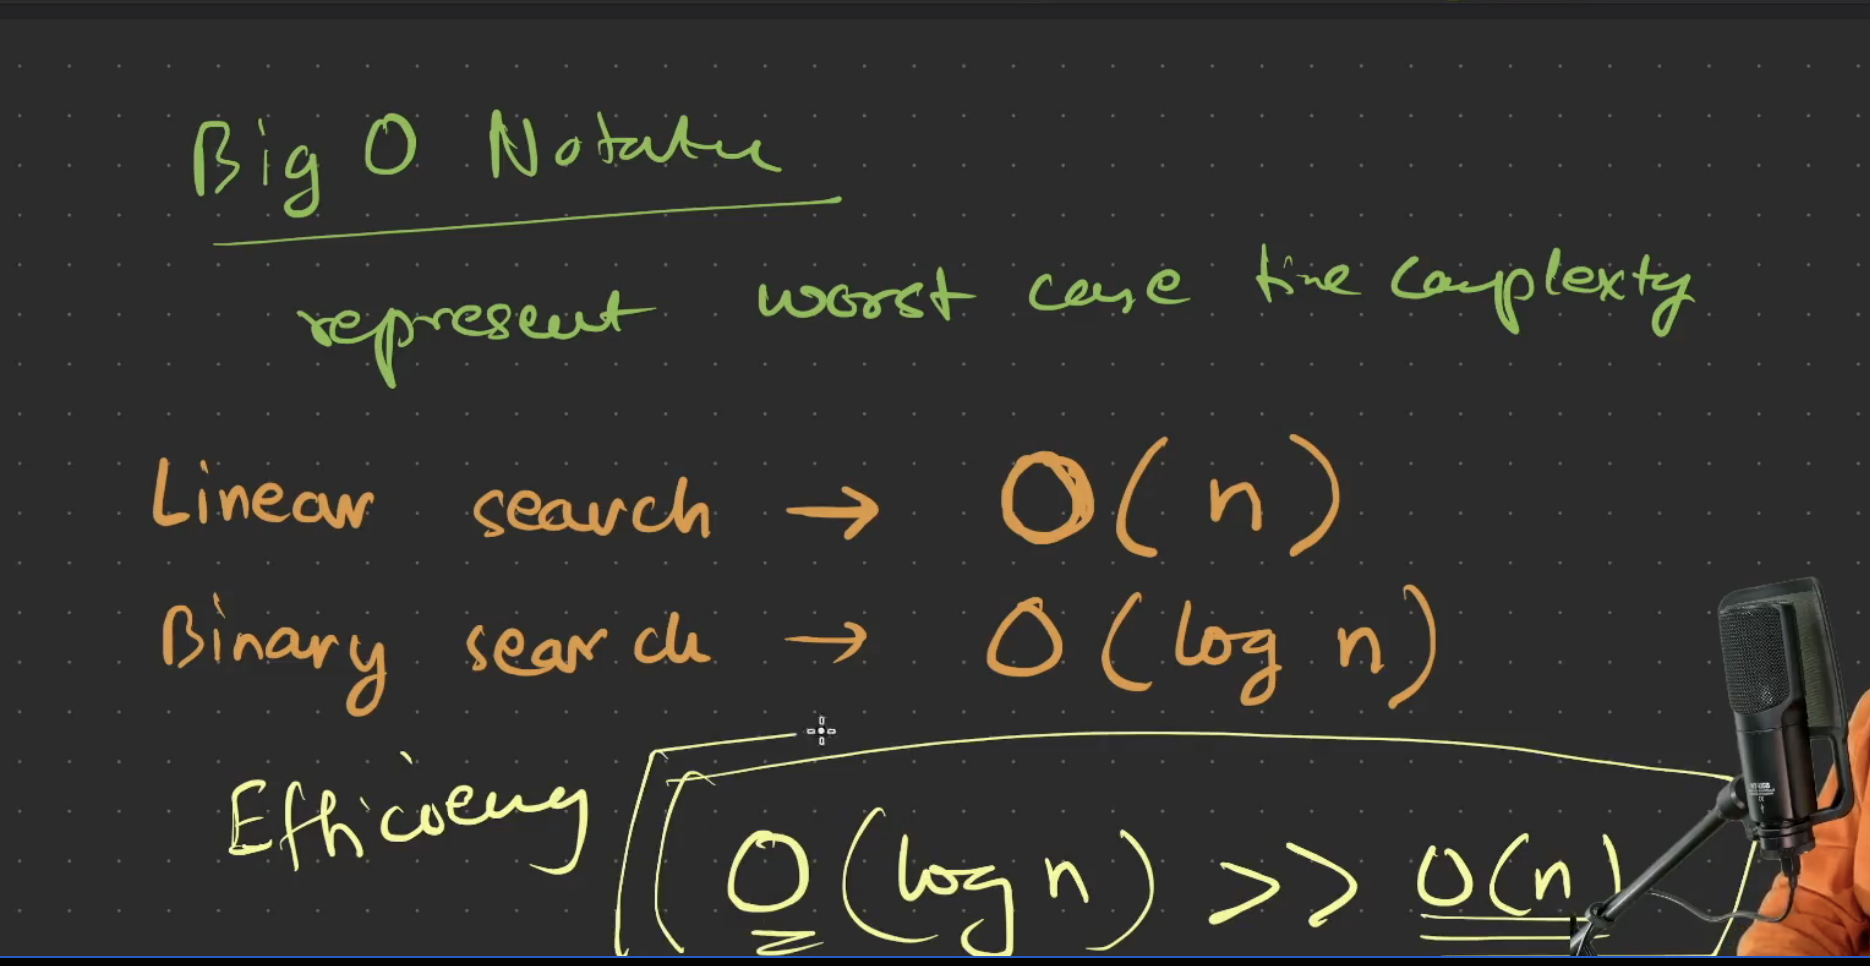 Big O Notation
represent worst case time complexity
Linear search → O(n)
Binary search → O(log n)
Efficiency O(log n) >> O(n)